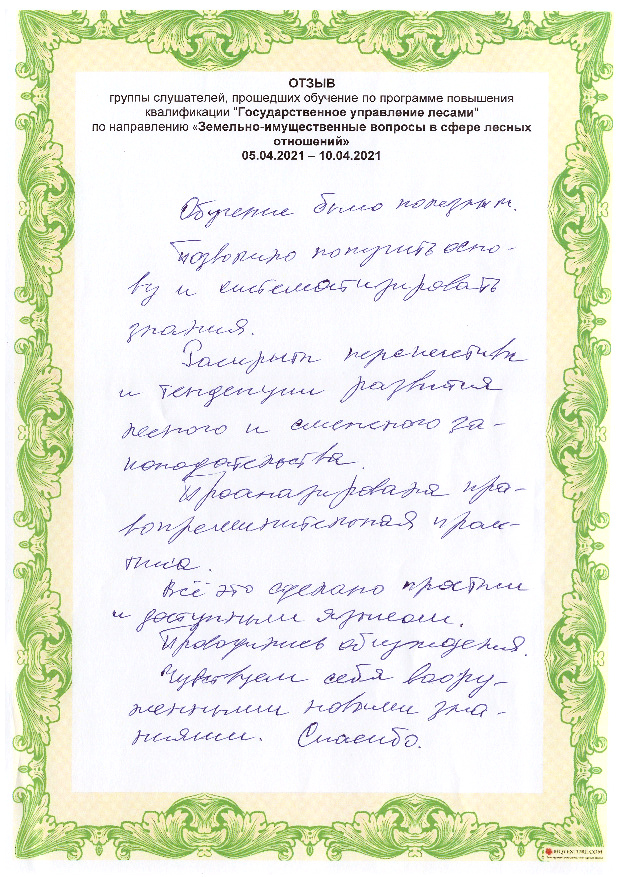 ОТЗЫВ
группы слушателей, прошедших обучение по программе повышения
квалификации "Государственное управление лесами"
по направлению «Земельно-имущественные вопросы в сфере лесных
отношений»
05.04.2021 – 10.04.2021
Обучение было полезным.
Позволило получить осно-
ву и систематизировать
знания.
Раскрыты перспективы
и тенденции развития
лесного и смежного за-
конодательства.
Проанализирована пра-
воприменительная прак-
тика.
Всё это сделано простым
и доступным языком.
Проводились обсуждения.
Чувствуем себя воору-
женными новыми зна-
ниями. Спасибо.